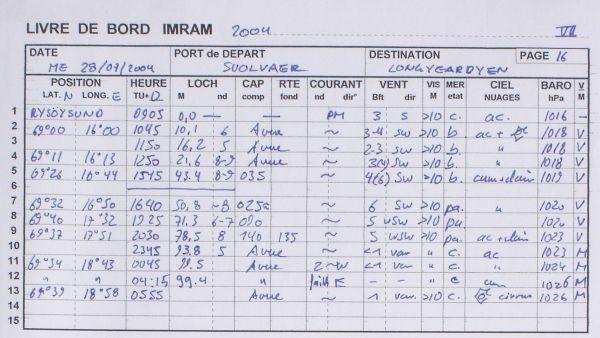 LIVRE DE BORD IMRAM 2004 VII
DATE PORT de DEPART DESTINATION PAGE 16
ME 28/07/2004 SVOLVAER LONGYEARDYEN
POSITION HEURE LOCH CAP RTE COURANT VENT VIS MER CIEL BARO V
LAT. N LONG. E TU+D M nd comp fond nd dir° Bft dir M etat NUAGES hPa M
1 RYSÖYSUND 0905 0,0 — — PM 3 S >10 c. ac. 1016 —
2 69°00 16°00 1045 10,1 6 Avue ~ 3-4 SW >10 b. ac + 1018 V
3 1150 16,2 5 Avue ~ 2-3 SW >10 b. " 1018 V
4 69°11 16°13 1250 21,6 8-9 Avue ~ 3(4) SW >10 b. " 1018 V
5 69°26 16°44 1545 43.4 8-9 035 ~ 4(6) SW >10 b. cum+clair 1019 V
6
7 69°32 16°50 1640 50,8 ~8 025 ~ 6 SW >10 pa. " 1020 V
8 69°40 17°32 1925 71,3 6-7 090 ~ 5 WSW >10 pa. 1020 V
9 69°37 17°51 2030 78,5 8 140 135 ~ 5 WSW >10 pa. ac + clair 1023 V
10 2345 93.8 5 Avue ~ <1 var " c. ac 1023 M
11 69°34 18°43 0045 99.5 Avue 2~W <1 var " c. " 1024 M
12 " " 04:15 99.4 " faible E - - " c cum 1026 M
13 69°39 18°58 0555 Avue ~ 1 var. >10 c. cirrus 1026 M
14
15